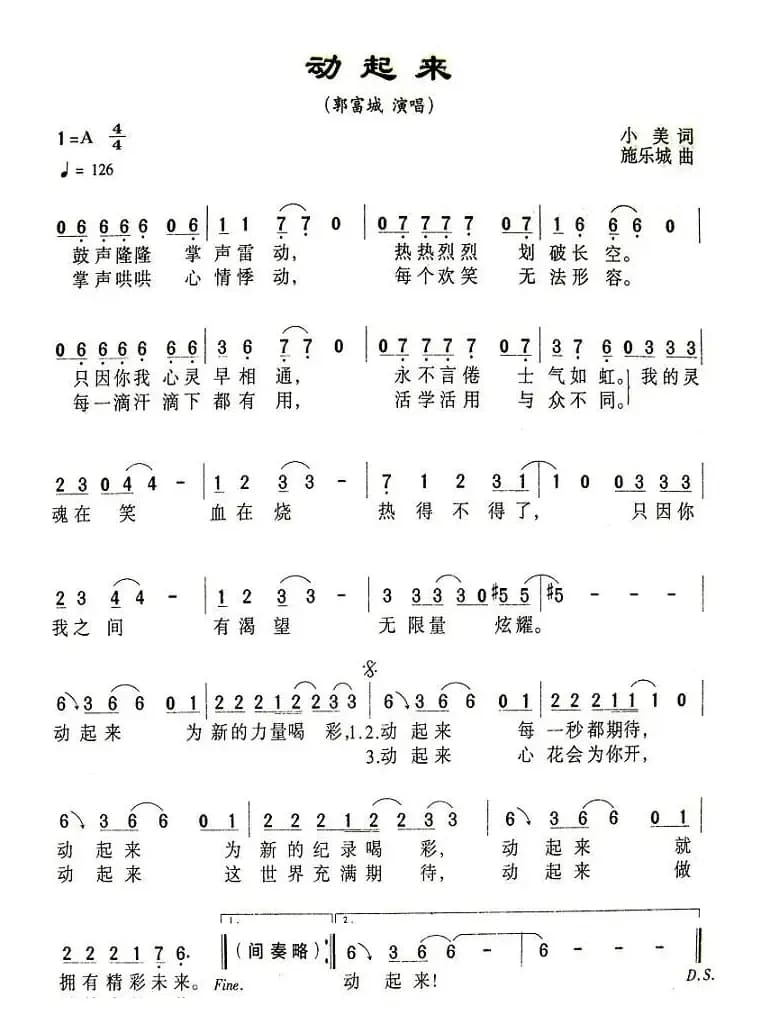 动起来
(郭富城 演唱)
1=A 4/4
小 美 词
♩= 126
施乐城 曲
0 6 6 6 6 0 6 | 1 1 7 7 0 | 0 7 7 7 7 0 7 | 1 6 6 6 0 |
鼓声隆隆 掌声雷动, 热热烈烈 划破长空。
掌声哄哄 心情悸动, 每个欢笑 无法形容。
0 6 6 6 6 6 6 | 3 6 7 7 0 | 0 7 7 7 7 0 7 | 3 7 6 0 3 3 3 |
只因你我心灵早相通, 永不言倦 士气如虹。我的灵
每一滴汗滴下都有用, 活学活用 与众不同。
2 3 0 4 4 - | 1 2 3 3 - | 7 1 2 3 1 | 1 0 0 3 3 3 |
魂在笑 血在烧 热得不得了, 只因你
2 3 4 4 - | 1 2 3 3 - | 3 3 3 3 0 #5 5 | #5 - - - |
我之间 有渴望 无限量 炫耀。
6 3 6 6 0 1 | 2 2 2 1 2 2 3 3 | 6 3 6 6 0 1 | 2 2 2 1 1 1 0 |
动起来 为新的力量喝彩,1.2.动起来 每一秒都期待,
3.动起来 心花会为你开,
6 3 6 6 0 1 | 2 2 2 1 2 2 3 3 | 6 3 6 6 0 1 |
动起来 为新的纪录喝彩, 动起来 就
动起来 这世界充满期待, 动起来 做
1. 2.
2 2 2 1 7 6. (间奏略) 6 3 6 6 - - | 6 - - -
拥有精彩未来。 Fine. 动起来! D.S.